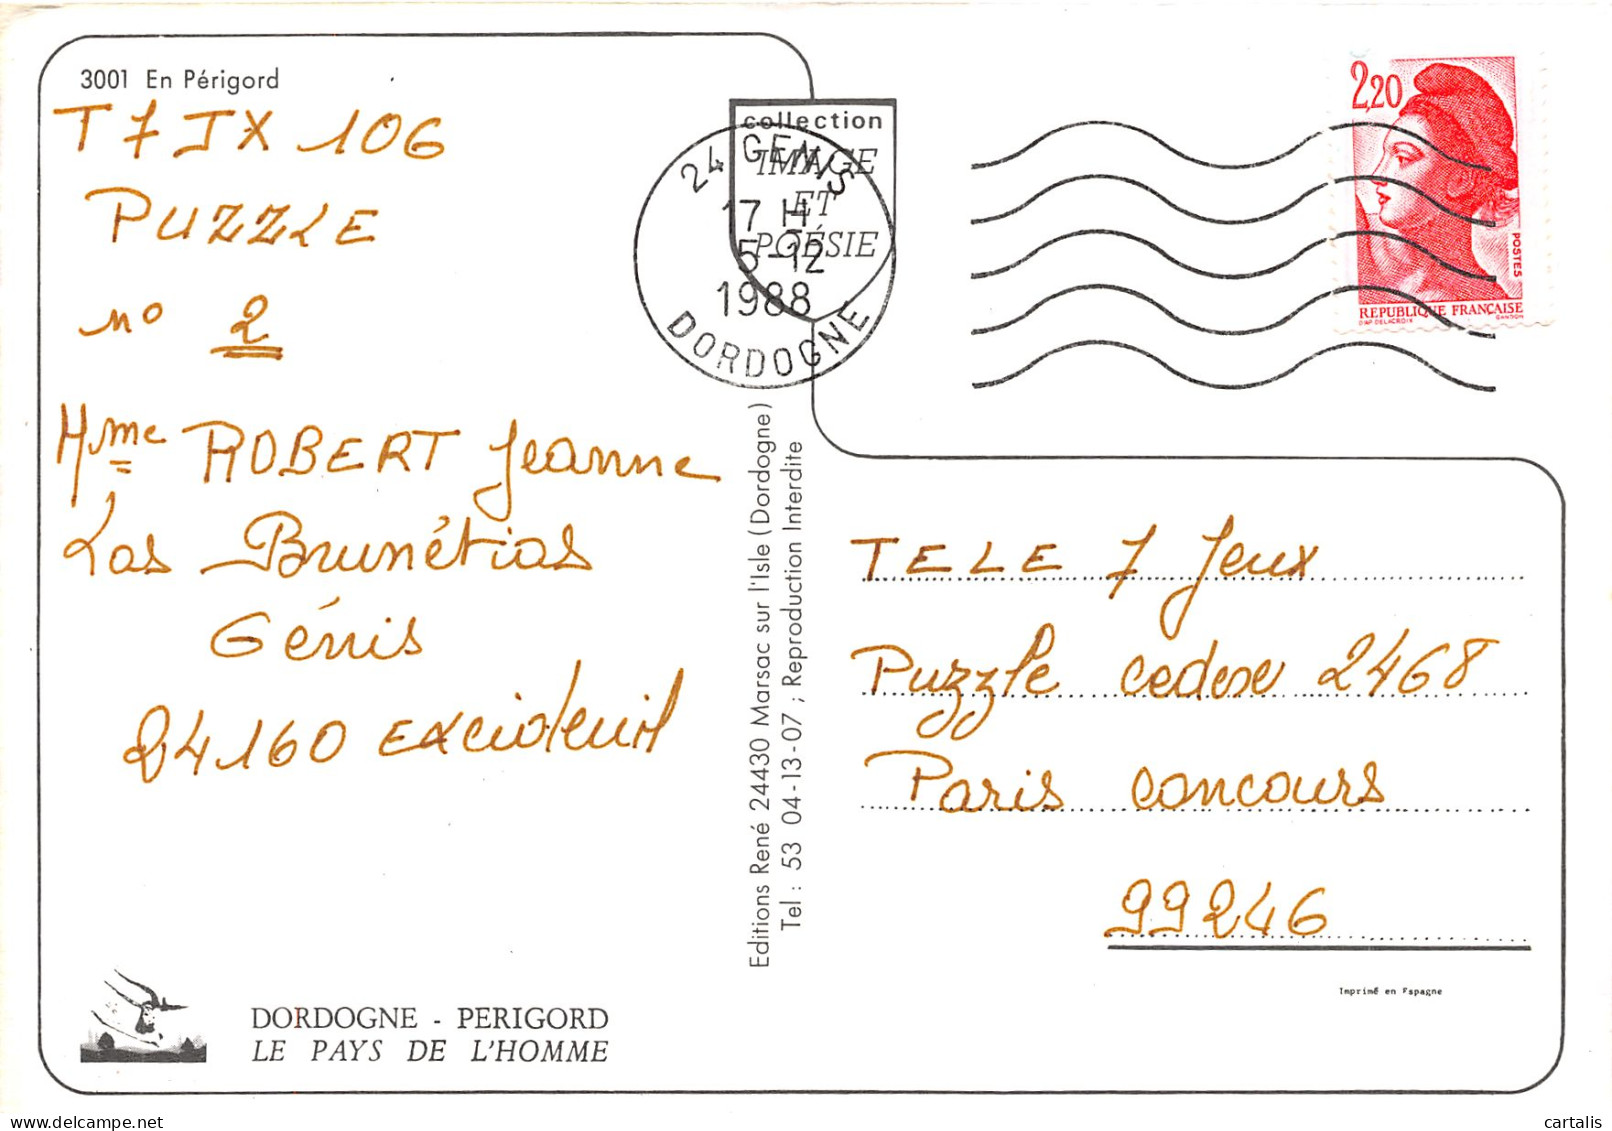 3001 En Périgord
T 7 JX 106
PUZZLE
no 2
Mme ROBERT Jeanne
Las Brunétias
Génis
24160 Excideuil
DORDOGNE - PERIGORD
LE PAYS DE L'HOMME
collection
IMAGE
ET
POÉSIE
24 GENIS
17 H
5-12
1988
DORDOGNE
Editions René 24430 Marsac sur l'Isle (Dordogne)
Tel : 53 04-13-07 ; Reproduction Interdite
2,20
POSTES
REPUBLIQUE FRANÇAISE
D'AP. DELACROIX GANDON
TELE 7 Jeux
Puzzle cedex 2468
Paris concours
99246
Imprimé en Espagne
cartalis